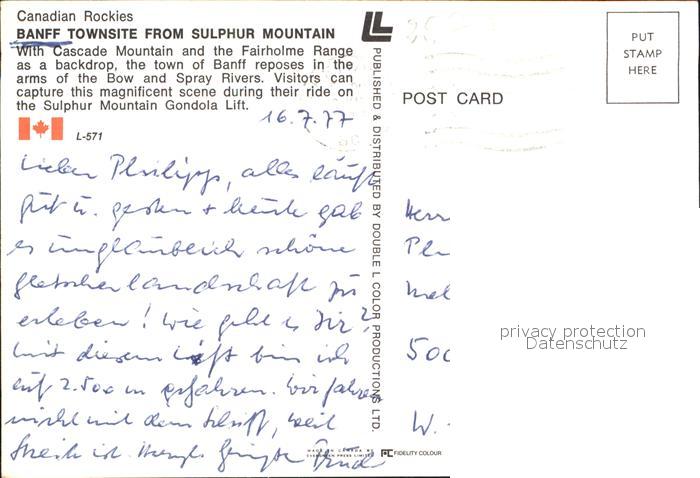 Canadian Rockies
BANFF TOWNSITE FROM SULPHUR MOUNTAIN
With Cascade Mountain and the Fairholme Range
as a backdrop, the town of Banff reposes in the
arms of the Bow and Spray Rivers. Visitors can
capture this magnificent scene during their ride on
the Sulphur Mountain Gondola Lift.
L-571
16.7.77
Lieber Philipp, alles läuft
gut u. gestern + heute gab
es unglaublich schöne
Gletscherlandschaft zu
erleben! Wie geht es Dir?
Mit diesem Lift bin ich
auf 2.500 m gefahren. Wir fahren
nicht mit dem Schiff, weil
Streik ist. Herzl.
PUBLISHED & DISTRIBUTED BY DOUBLE L COLOR PRODUCTIONS LTD.
MADE IN CANADA BY
EVERGREEN PRESS LIMITED
FIDELITY COLOUR
POST CARD
PUT
STAMP
HERE
Herr
500
W.
privacy protection
Datenschutz